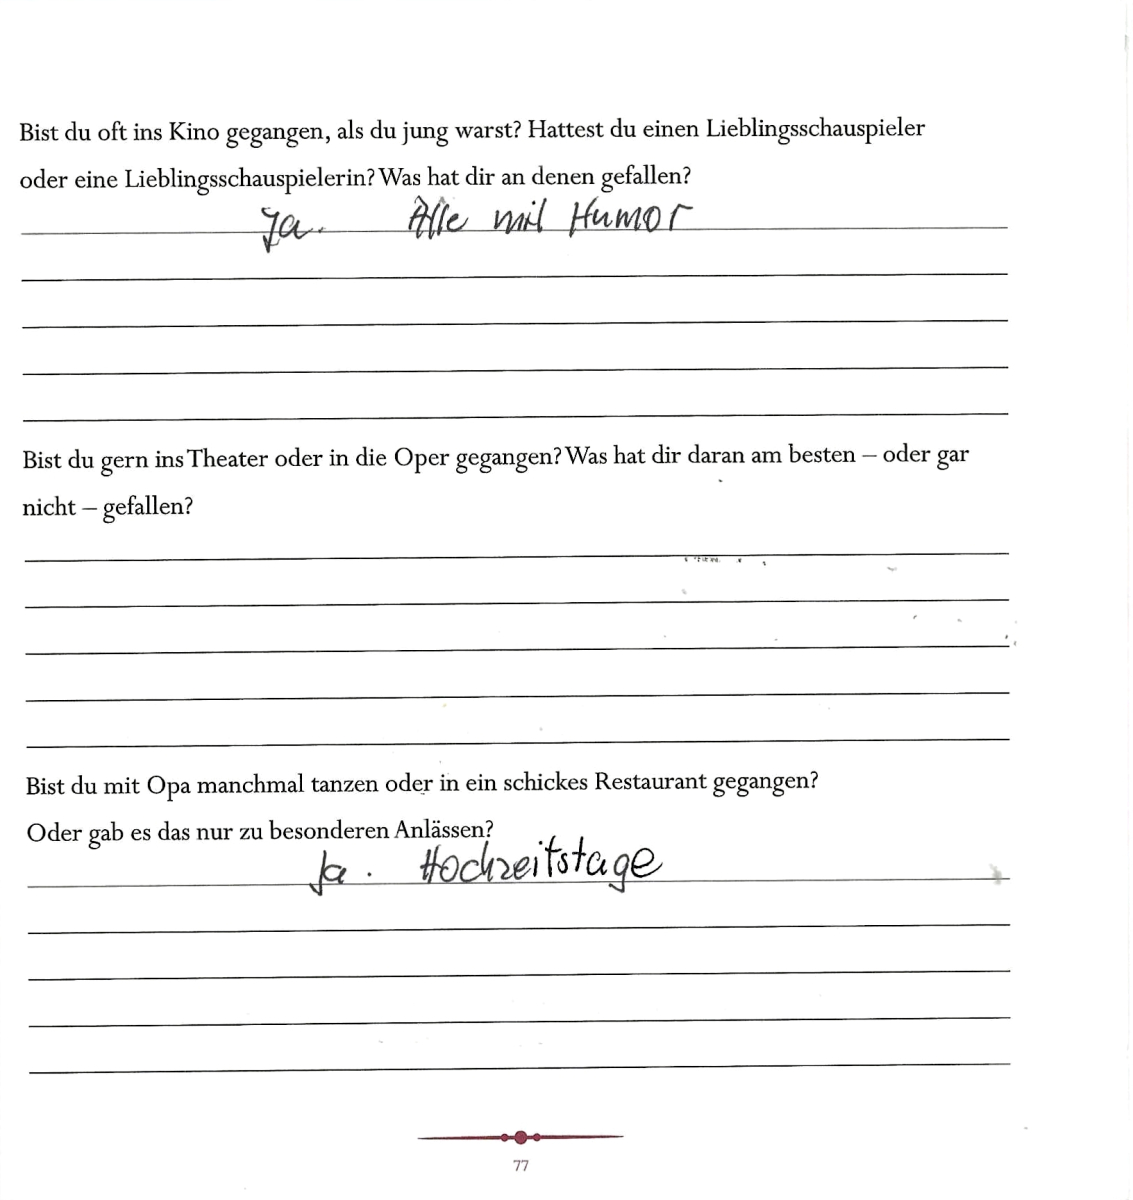 Bist du oft ins Kino gegangen, als du jung warst? Hattest du einen Lieblingsschauspieler
oder eine Lieblingsschauspielerin? Was hat dir an denen gefallen?
Ja. Alle mit Humor
Bist du gern ins Theater oder in die Oper gegangen? Was hat dir daran am besten – oder gar
nicht – gefallen?
Bist du mit Opa manchmal tanzen oder in ein schickes Restaurant gegangen?
Oder gab es das nur zu besonderen Anlässen?
Ja. Hochzeitstage
77